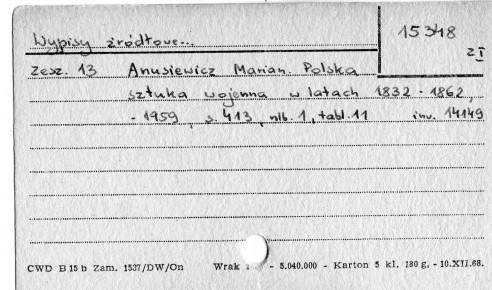 Wypisy źródłowe...
15348
z I
Zesz. 13 Anusiewicz Marian. Polska
sztuka wojenna w latach 1832 - 1862,
- 1959, s. 413, nlb. 1, tabl. 11 inv. 14149
CWD B 15 b Zam. 1537/DW/On Wrak - 5.040.000 - Karton 5 kl. 180 g. - 10.XII.68.